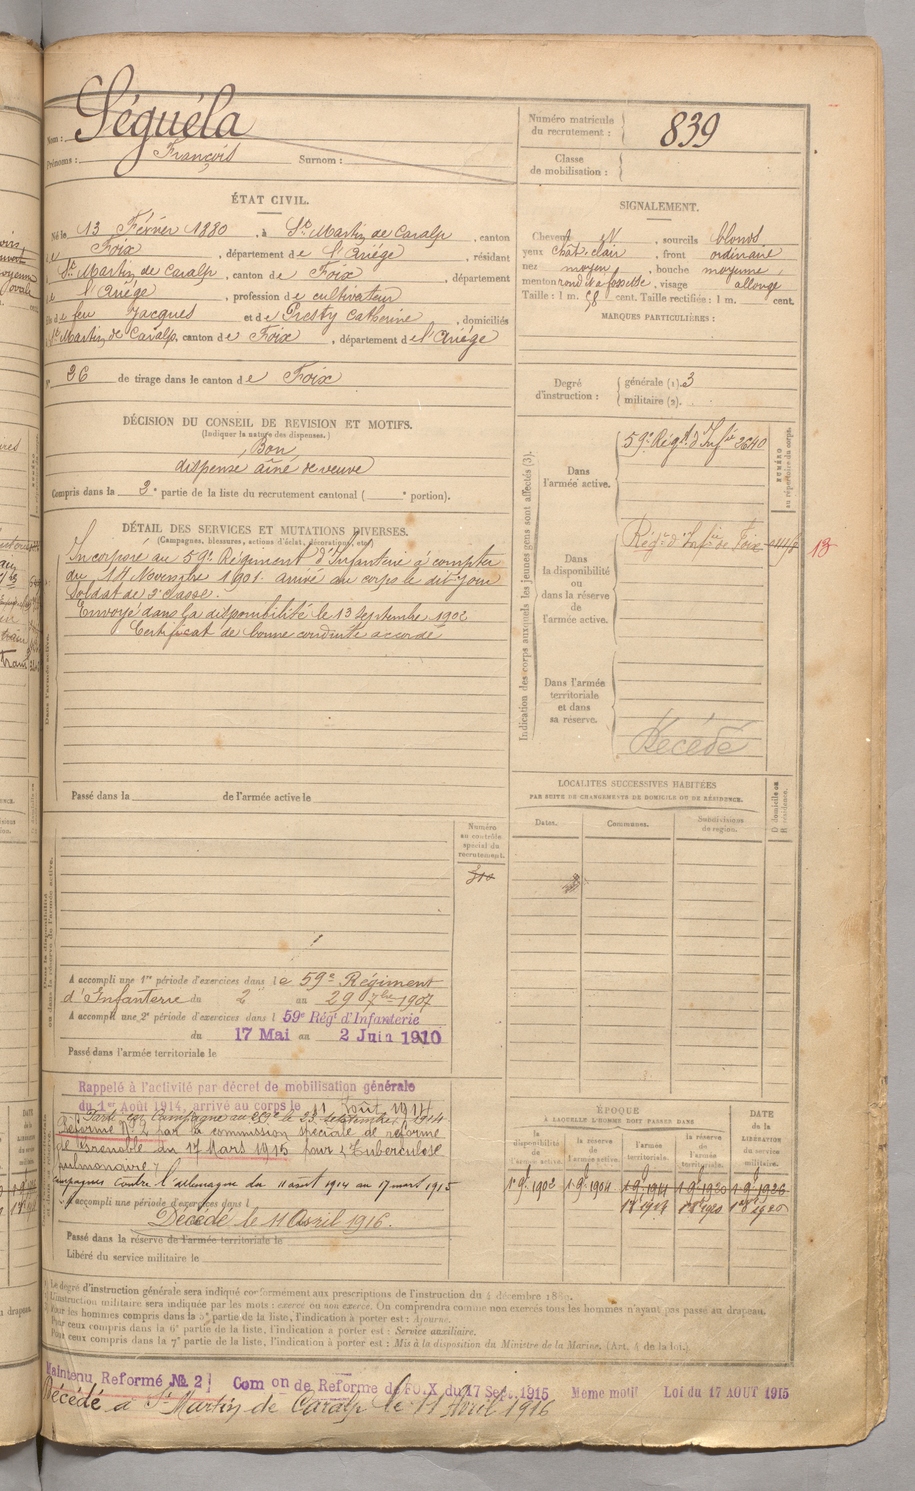 Nom : Séguéla
Prénoms : François Surnom :
Numéro matricule du recrutement : 839
Classe de mobilisation :
ÉTAT CIVIL.
Né le 13 Février 1880, à St Martin de Caralp, canton
de Foix, département de l'Ariége, résidant
à St Martin de Caralp, canton de Foix, département
de l'Ariége, profession de cultivateur
fils de feu Jacques et de Presby Catherine, domiciliés
à St Martin de Caralp, canton de Foix, département de l'Ariége
N° 26 de tirage dans le canton de Foix
SIGNALEMENT.
Cheveux, sourcils blonds
yeux chât. clair, front ordinaire
nez moyen, bouche moyenne,
menton rond à fossette, visage allongé
Taille : 1 m. 58 cent. Taille rectifiée : 1 m. cent.
MARQUES PARTICULIÈRES :
Degré d'instruction : générale (1). 3
militaire (2).
DÉCISION DU CONSEIL DE REVISION ET MOTIFS.
(Indiquer la nature des dispenses.)
Bon
dispense aîné de veuve
Compris dans la 2e partie de la liste du recrutement cantonal ( e portion).
DÉTAIL DES SERVICES ET MUTATIONS DIVERSES.
(Campagnes, blessures, actions d'éclat, décorations, etc.)
Incorporé au 59e Régiment d'Infanterie à compter
du 14 Novembre 1901. arrivé au corps le dit jour
Soldat de 2e classe.
Envoyé dans la disponibilité le 13 Septembre 1902
Certificat de bonne conduite accordé
Dans l'armée active.
Passé dans la de l'armée active le
Indication des corps auxquels les jeunes gens sont affectés (3).
NUMÉRO au répertoire du corps.
Dans l'armée active.
59e Régt d'Infie 2640
Dans la disponibilité ou dans la réserve de l'armée active.
Régt d'Infie de Foix
13
Dans l'armée territoriale et dans sa réserve.
Décédé
LOCALITÉS SUCCESSIVES HABITÉES
PAR SUITE DE CHANGEMENTS DE DOMICILE OU DE RÉSIDENCE.
Dates. Communes. Subdivisions de région. D domicile ou R résidence.
Numéro au contrôle spécial du recrutement.
Dans la disponibilité ou dans la réserve de l'armée active.
A accompli une 1re période d'exercices dans le 59e Régiment
d'Infanterie du 2 au 29 7bre 1907
A accompli une 2e période d'exercices dans l 59e Régt d'Infanterie
du 17 Mai au 2 Juin 1910
Passé dans l'armée territoriale le
Rappelé à l'activité par décret de mobilisation générale
du 1er Août 1914, arrivé au corps le 11 Août 1914
Parti en Campagne au le 23 septembre 1914
Réformé N° 2 par la commission spéciale de réforme
de Grenoble du 17 Mars 1915 pour : Tuberculose
pulmonaire.
Campagnes Contre l'allemagne du 11 août 1914 au 17 mars 1915
A accompli une période d'exercices dans l
Décédé le 11 Avril 1916.
Passé dans la réserve de l'armée territoriale le
Libéré du service militaire le
ÉPOQUE
À LAQUELLE L'HOMME DOIT PASSER DANS
DATE de la LIBÉRATION du service militaire.
la disponibilité de l'armée active. la réserve de l'armée active. l'armée territoriale. la réserve de l'armée territoriale.
1er 9e 1902 1er 9e 1904 1er 9e 1914 1er 9e 1920 1er 9e 1926
Le degré d'instruction générale sera indiqué conformément aux prescriptions de l'instruction du 4 décembre 1889.
L'instruction militaire sera indiquée par les mots : exercé ou non exercé. On comprendra comme non exercés tous les hommes n'ayant pas passé au drapeau.
Pour les hommes compris dans la 5e partie de la liste, l'indication à porter est : Ajourné.
Pour ceux compris dans la 6e partie de la liste, l'indication à porter est : Service auxiliaire.
Pour ceux compris dans la 7e partie de la liste, l'indication à porter est : Mis à la disposition du Ministre de la Marine. (Art. 4 de la loi.)
Maintenu Reformé No 2 Com on de Reforme de FOIX du 17 Sept. 1915 Meme motif Loi du 17 AOUT 1915
Décédé à St Martin de Caralp le 11 Avril 1916